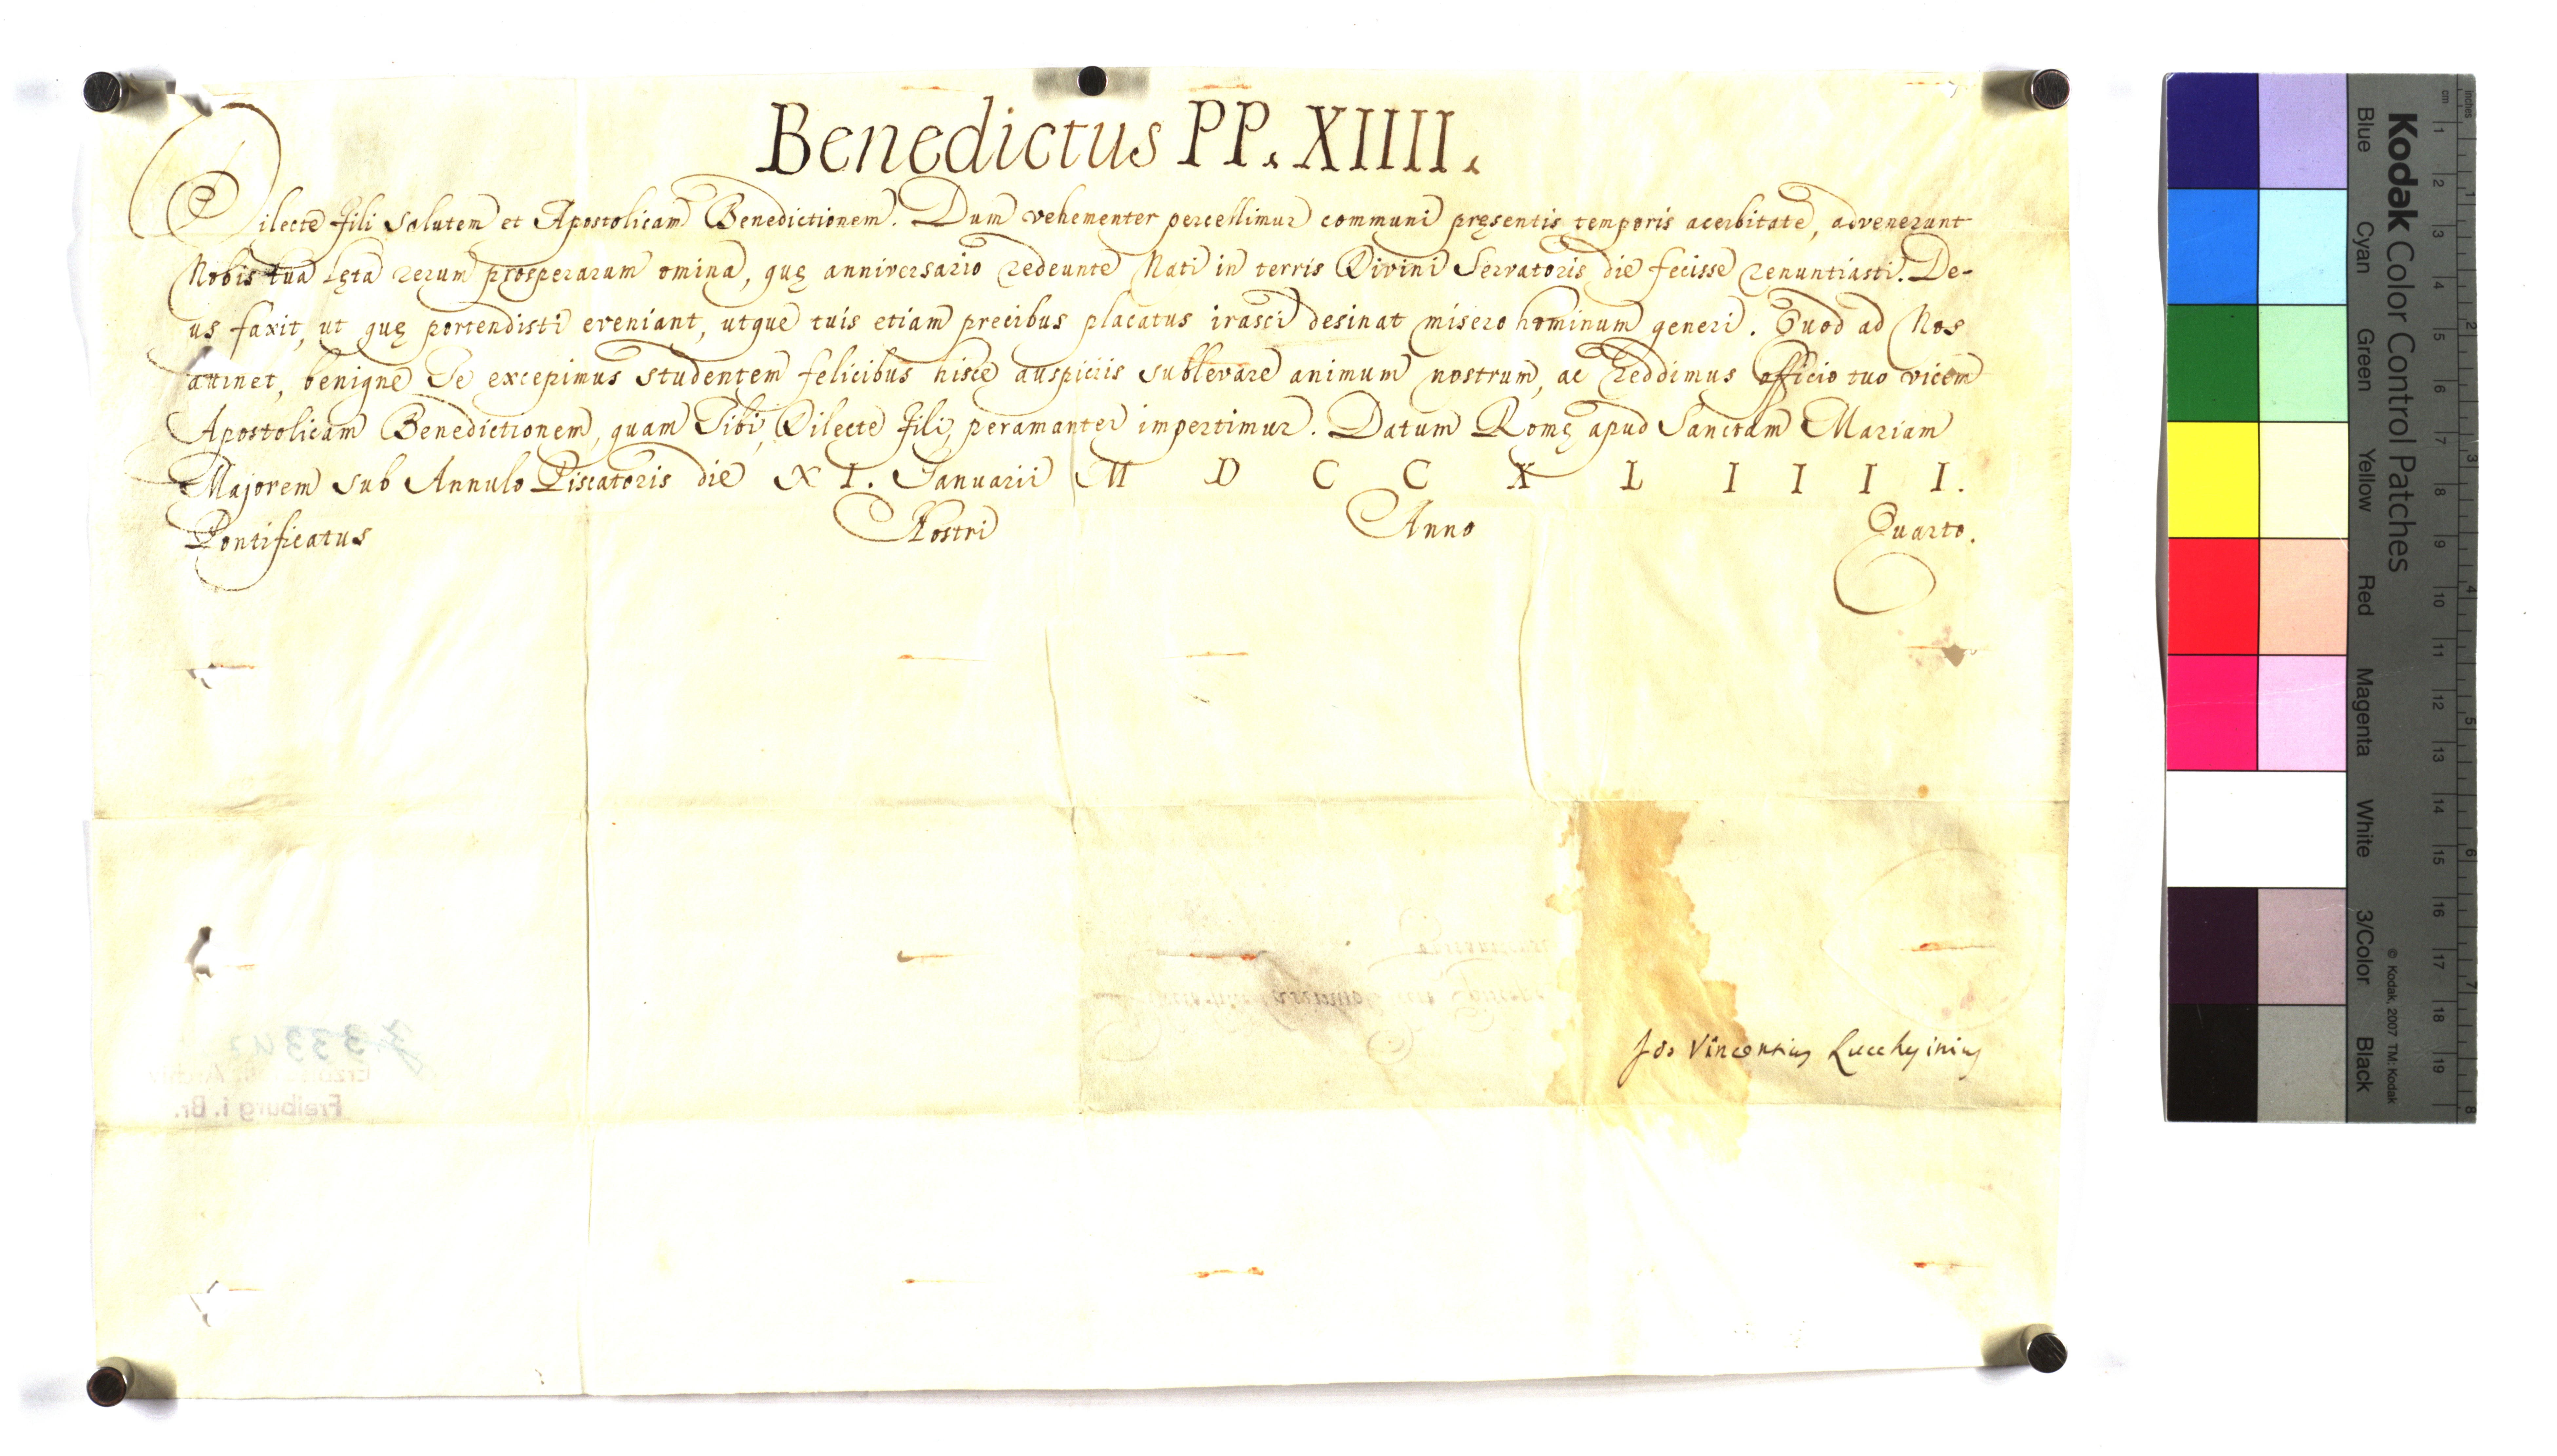 Benedictus PP. XIIII.
Dilecte Fili Salutem et Apostolicam Benedictionem. Dum vehementer percellimur communi pręsentis temporis acerbitate, advenerunt
Nobis tua lęta rerum prosperarum omina, quę anniversario redeunte Nati in terris Divini Servatoris die fecisse renuntiasti. De-
us faxit, ut quę portendisti eveniant, utque tuis etiam precibus placatus irasci desinat misero hominum generi. Quod ad Nos
attinet, benigne Te excepimus studentem felicibus hisce auspiciis sublevare animum nostrum, ac reddimus officio tuo vicem
Apostolicam Benedictionem, quam Tibi, Dilecte Fili, peramanter impertimur. Datum Romę apud Sanctam Mariam
Majorem sub Annulo Piscatoris die XI. Januarii M D C C X L I I I I.
Pontificatus Nostri Anno Quarto.
Jos Vincentius Lucchesinius
Freiburg i. Br.
Kodak Color Control Patches
Blue Cyan Green Yellow Red Magenta White 3/Color Black
© Kodak, 2007 TM: Kodak
inches 1 2 3 4 5 6 7 8
cm 1 2 3 4 5 6 7 8 9 10 11 12 13 14 15 16 17 18 19